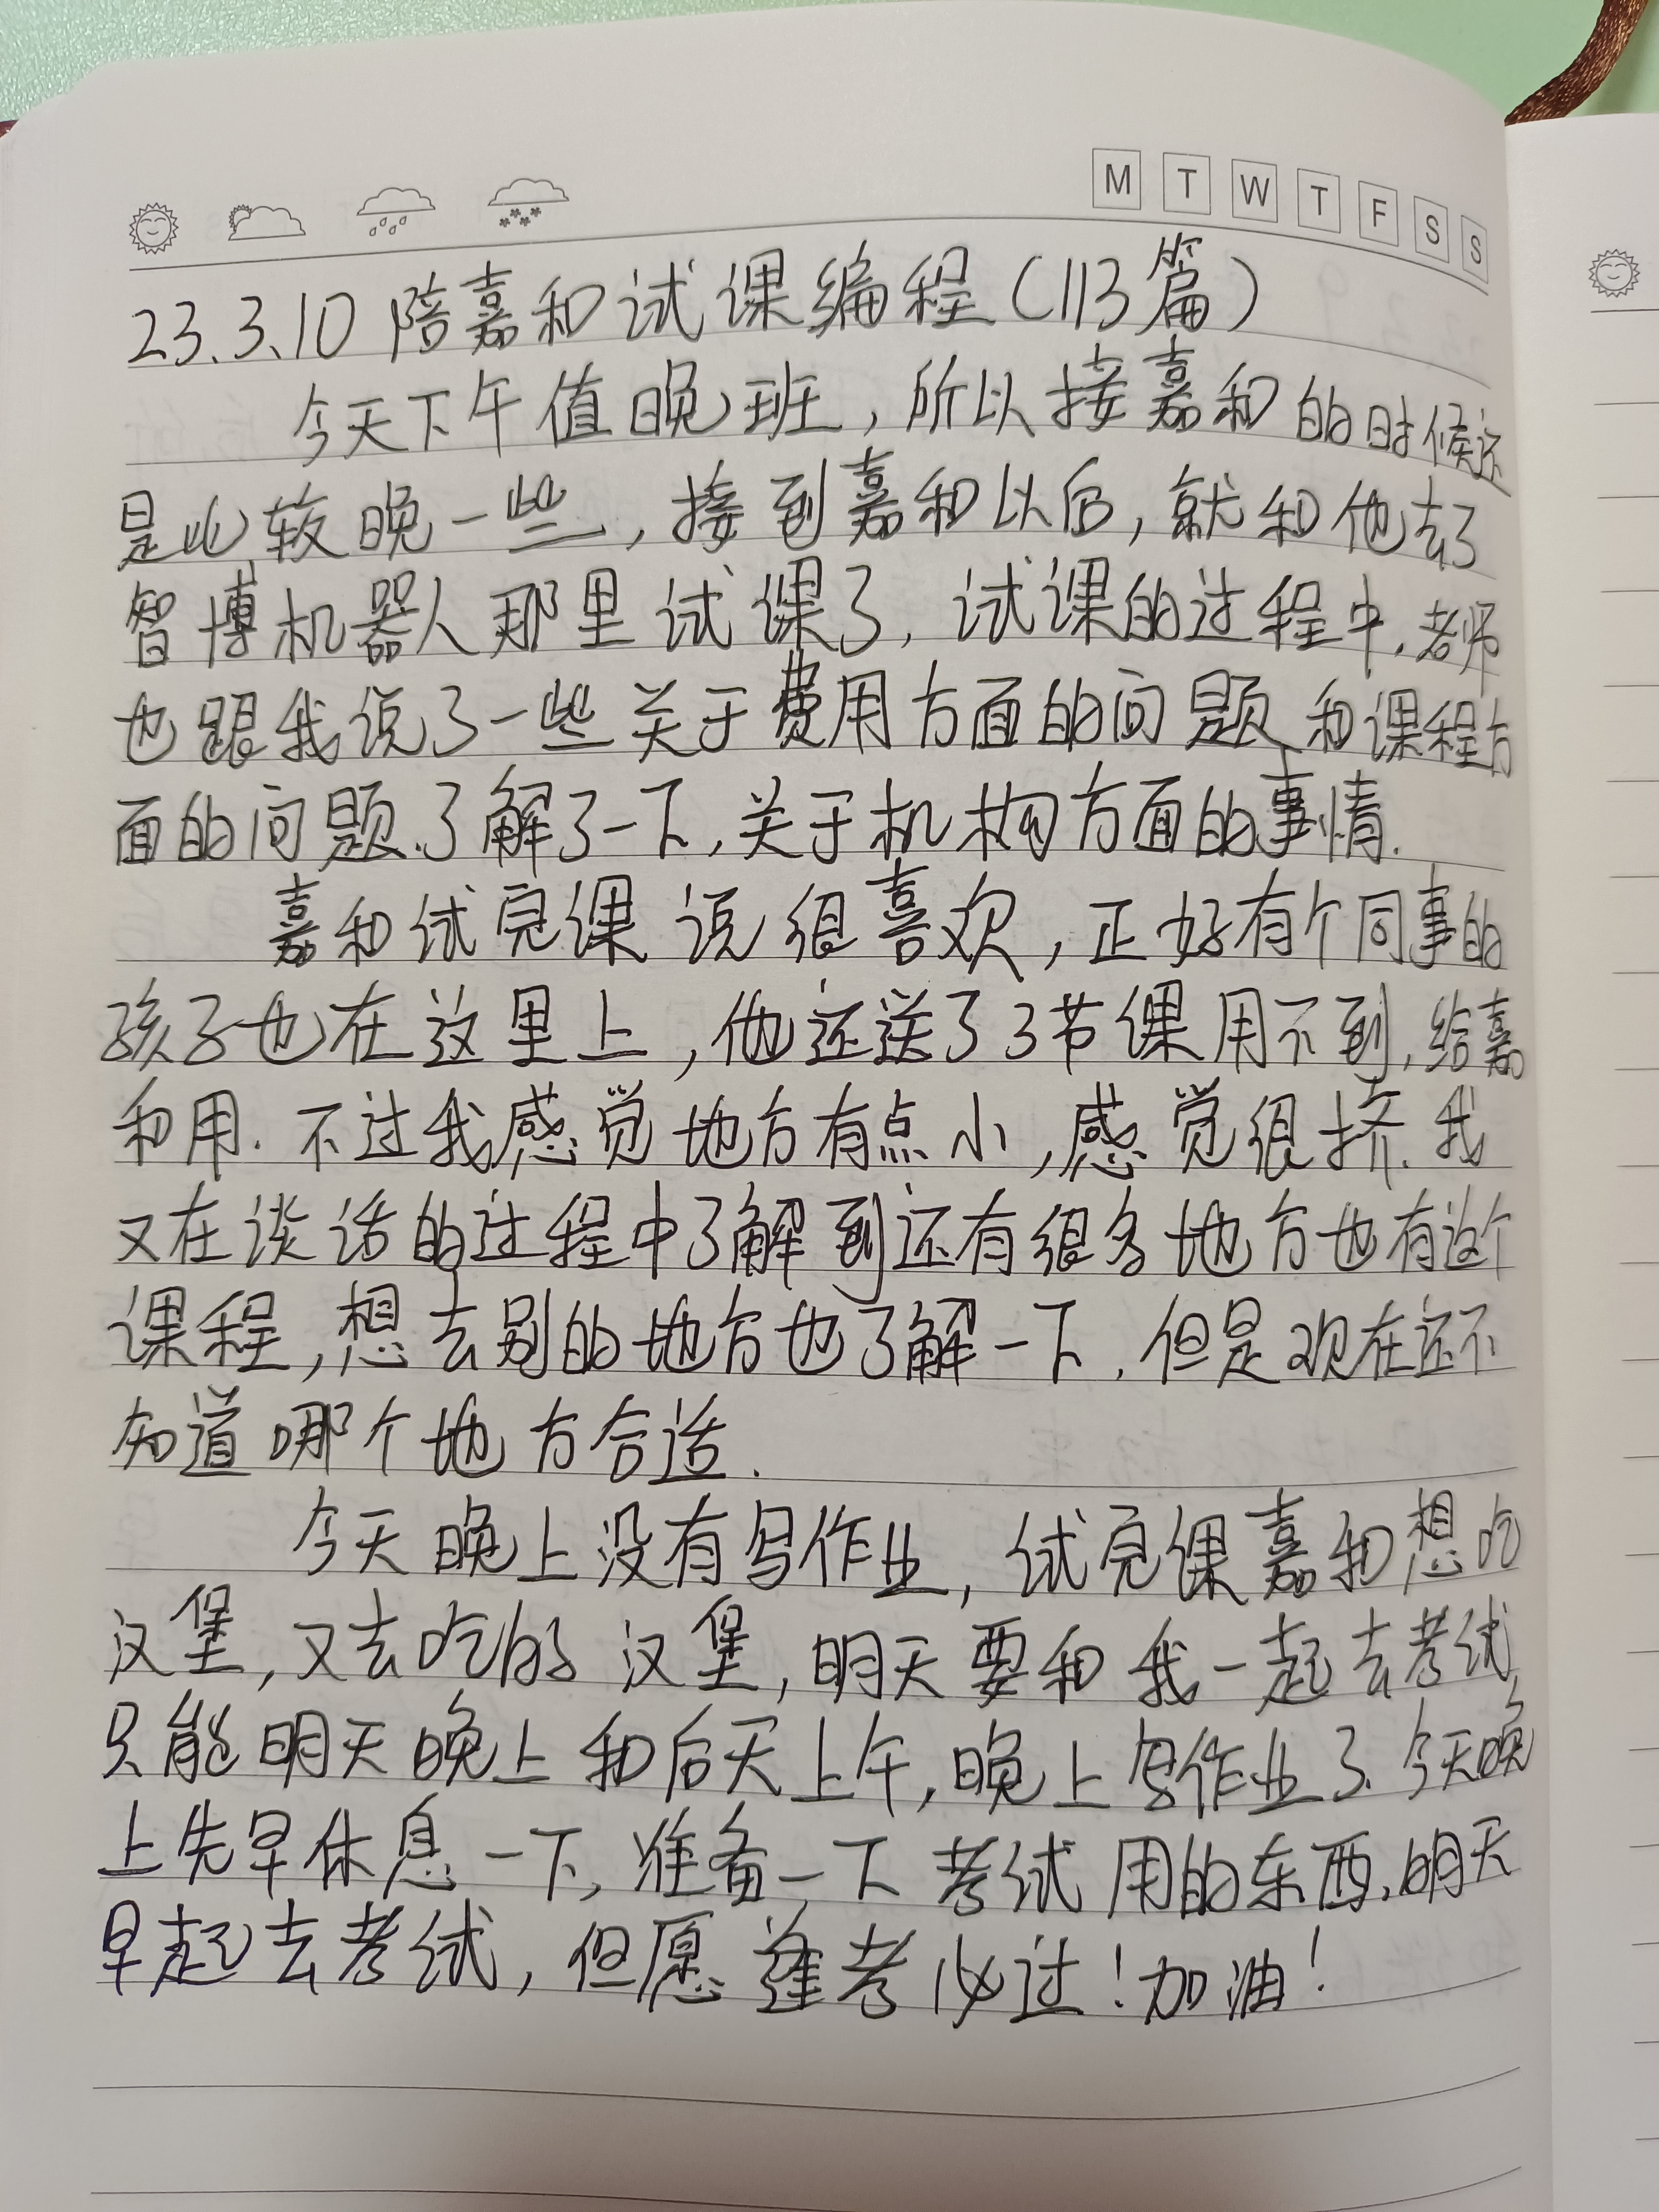 M T W T F S S
23.3.10 陪嘉和试课编程(113篇)
今天下午值晚班,所以接嘉和的时候还
是比较晚一些,接到嘉和以后,就和他去了
智博机器人那里试课了,试课的过程中.老师
也跟我说了一些关于费用方面的问题和课程方
面的问题.了解了一下,关于机构方面的事情.
嘉和试完课说很喜欢,正好有个同事的
孩子也在这里上,他还送了3节课用不到,给嘉
和用.不过我感觉地方有点小,感觉很挤.我
又在谈话的过程中了解到还有很多地方也有这个
课程,想去别的地方也了解一下.但是现在还不
知道哪个地方合适.
今天晚上没有写作业,试完课嘉和想吃
汉堡,又去吃的汉堡,明天要和我一起去考试,
只能明天晚上和后天上午,晚上写作业了.今天晚
上先早休息一下,准备一下考试用的东西.明天
早起去考试,但愿逢考必过!加油!